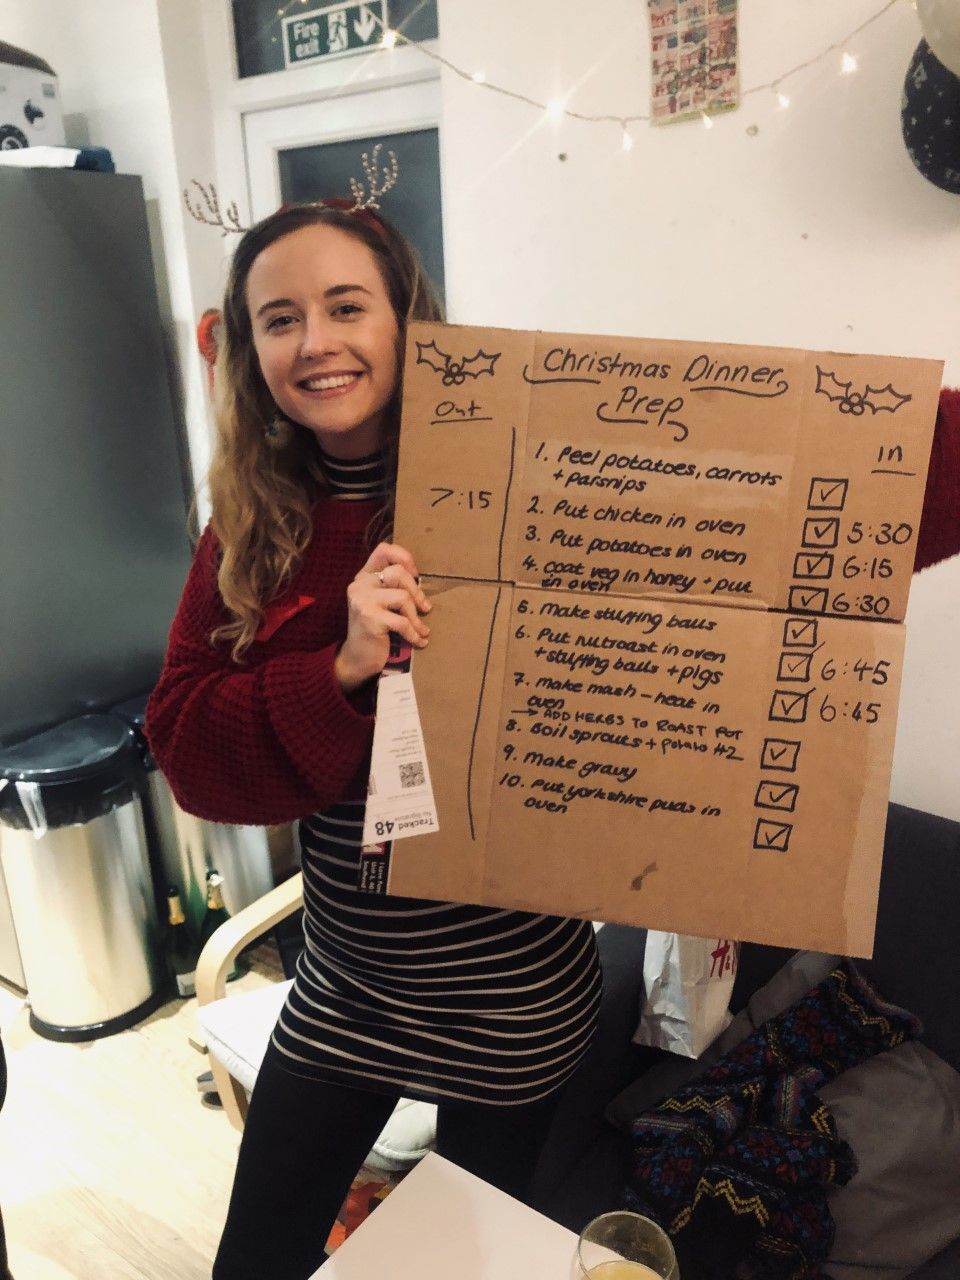 Fire
exit
Christmas Dinner
Prep
Out
in
7:15
1. Peel potatoes, carrots
+ parsnips
2. Put chicken in oven
5:30
3. Put potatoes in oven
6:15
4. coat veg in honey + put
in oven
6:30
5. Make stuffing balls
6. Put nutroast in oven
+ stuffing balls + pigs
6:45
7. Make mash – heat in
oven
6:45
→ ADD HERBS TO ROAST POT
8. Boil sprouts + potato #2
9. Make gravy
10. Put yorkshire puds in
oven
Tracked 48
No Signature
H&M